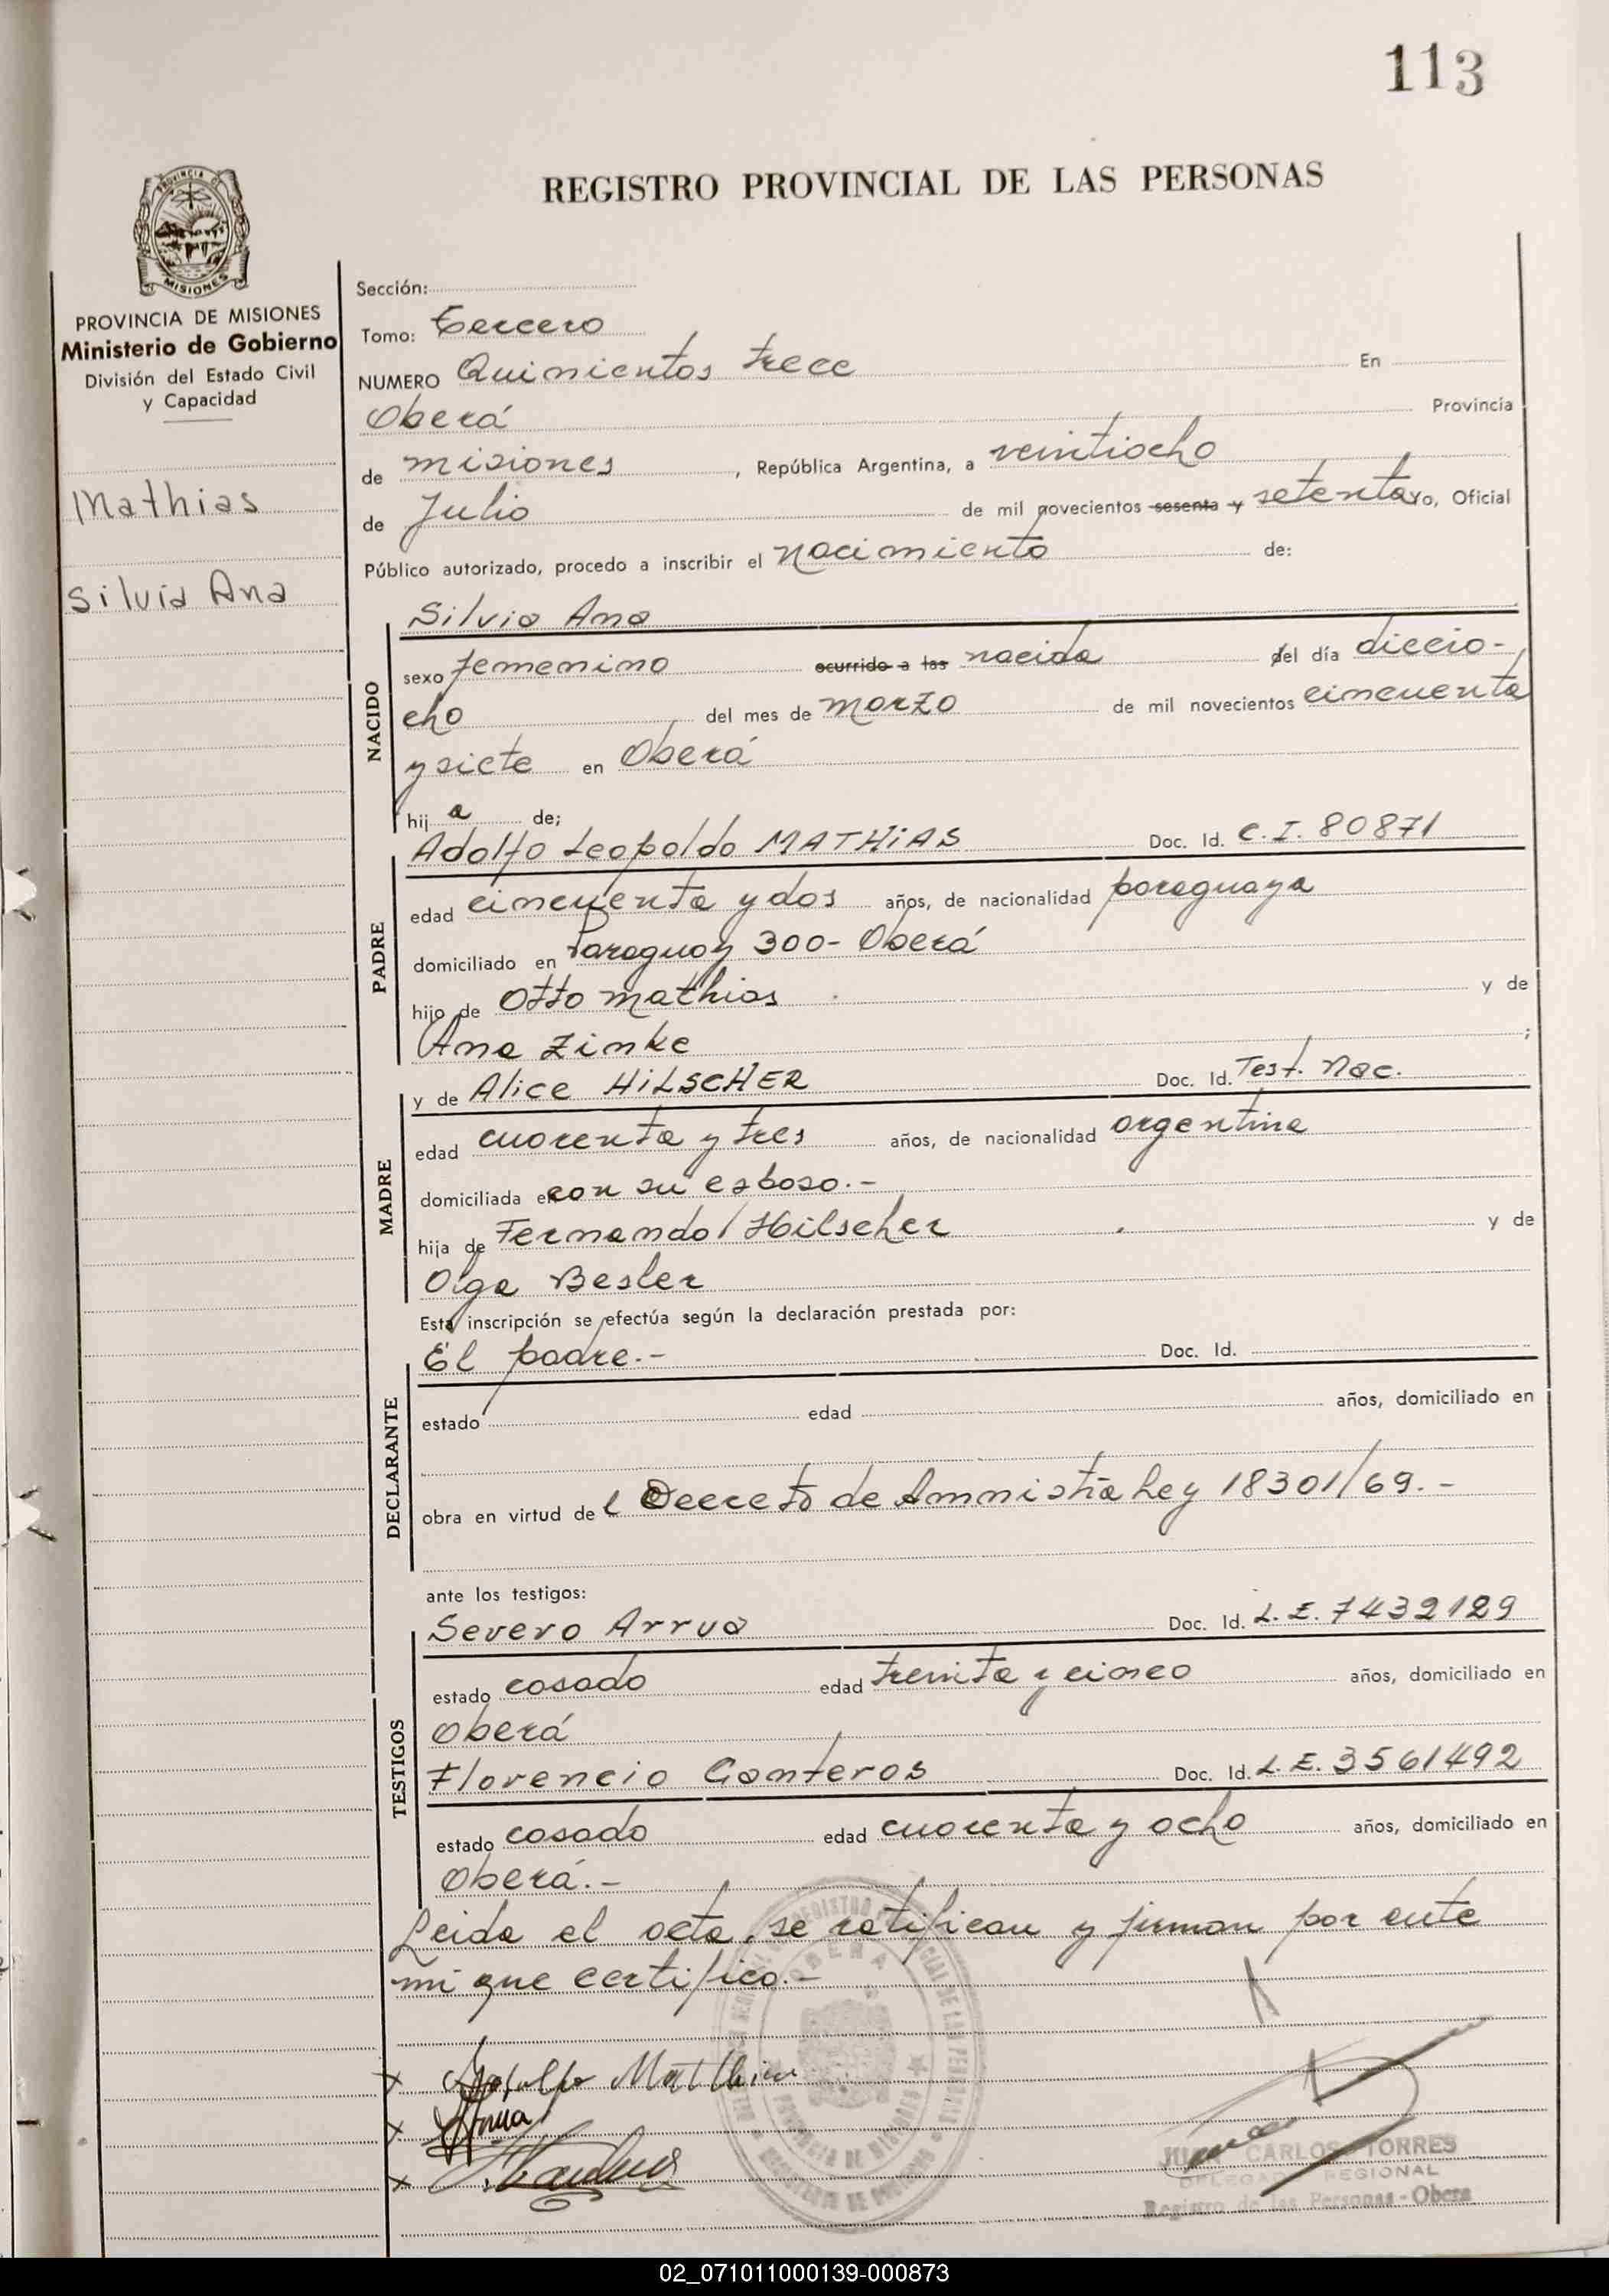 113
REGISTRO PROVINCIAL DE LAS PERSONAS
PROVINCIA DE MISIONES
Ministerio de Gobierno
División del Estado Civil
y Capacidad
Mathias
Silvia Ana
Sección:
Tomo: Tercero
NUMERO Quinientos trece En
Oberá Provincia
de misiones, República Argentina, a veintiocho
de Julio de mil novecientos sesenta y setenta yo, Oficial
Público autorizado, procedo a inscribir el nacimiento de:
NACIDO
Silvia Ana
sexo femenino ocurrido a las nacida del día diecio-
cho del mes de marzo de mil novecientos cincuenta
y siete en Oberá
hija de;
PADRE
Adolfo Leopoldo MATHiAS Doc. Id. C.I. 80871
edad cincuenta y dos años, de nacionalidad paraguaya
domiciliado en Paraguay 300- Oberá
hijo de Otto mathias y de
Ana Zinke ;
MADRE
y de Alice HiLSCHER Doc. Id. Test. Nac.
edad cuarenta y tres años, de nacionalidad argentina
domiciliada en con su esposo.-
hija de Fernando Hilscher y de
Olga Besler
Esta inscripción se efectúa según la declaración prestada por:
DECLARANTE
El padre.- Doc. Id.
estado edad años, domiciliado en
obra en virtud del Decreto de Amnistia Ley 18301/69.-
ante los testigos:
TESTIGOS
Severo Arrua Doc. Id. L.E. 7432129
estado casado edad treinta y cinco años, domiciliado en
Oberá
Florencio Ganteros Doc. Id. L.E. 3561492
estado casado edad cuarenta y ocho años, domiciliado en
Oberá.-
Leida el acta, se ratifican y firman por ante
mi que certifico.-
x Adolfo Matthias
x Arrua
x
JUAN CARLOS TORRES
DELEGADO REGIONAL
Registro de las Personas - Obera
02_071011000139-000873